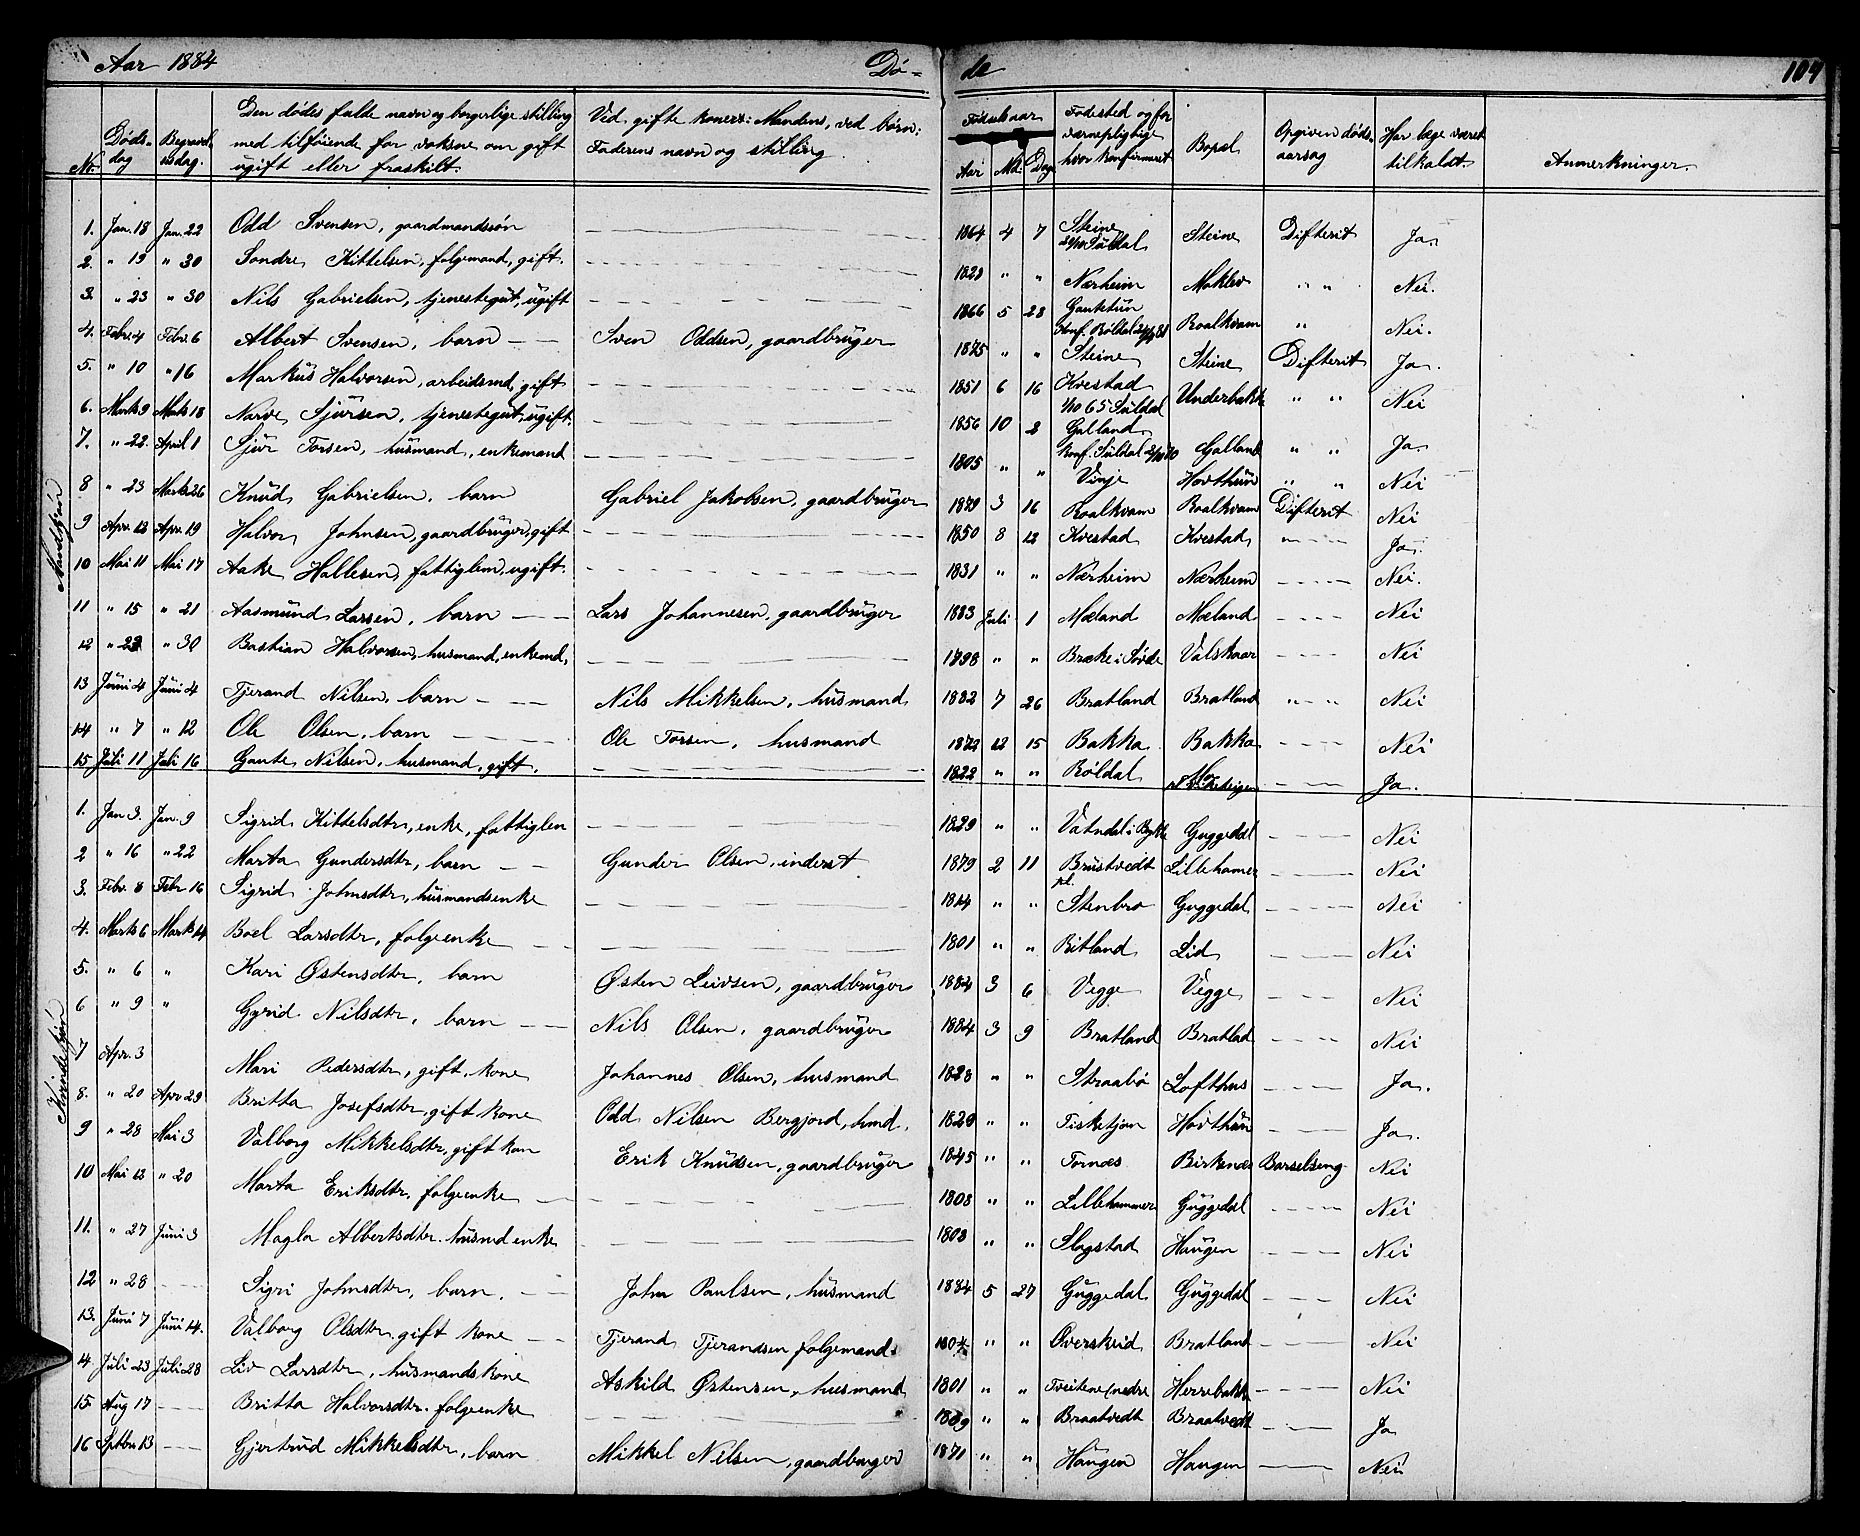 Aar 1884 Dø- de 104
No. Dødsdag Begravelsesdag. Den dødes fulde navn og borgerlige stilling med tilføiende for voksne om gift ugift eller fraskilt. Ved gifte koner: Mandens, ved børn: Faderens navn og stilling Fødselsaar Aar Md. Dag Fødested og for værnepligtige hvor konfirmeret Bopæl Opgiven dødsaarsag Har læge været tilkaldt. Anmerkninger.
Mandkjøn
1. Jan. 18 Jan. 22 Odd Svensen, gaardmandssøn 1864 4 7 Steine Suldal Steine Difterit Ja.
2. " 19 " 30 Sondre Kittelsen, folgemand, gift. 1828 " " Nærheim Moklev " " Nei.
3. " 23 " 30 Nils Gabrielsen, tjenestegut, ugift 1866 5 28 Gautetun Konf. Røldal Roalkvam " Nei.
4. Febr. 4 Febr. 6 Albert Svensen, barn Sven Oddsen, gaardbruger 1875 " " Steine Steine Difterit Ja.
5. " 10 " 16 Markus Halvorsen, arbeidsmd, gift 1851 6 16 Kvestad 1/10 65 Suldal Underbakke " " Nei
6. Marts 9 Marts 18 Narve Sjursen, tjenestegut, ugift. 1856 10 2 Galland Konf. Suldal Galland " " Ja.
7. " 22. April 1 Sjur Torsen, husmand, enkemand 1805 " " Vinje Hovthun " " Nei
8 " 23 Marts 26 Knud Gabrielsen, barn Gabriel Jakobsen, gaardbruger 1879 3 16 Roalkvam Roalkvam Difterit Nei
9 Apr. 12 Apr. 19 Halvor Johnsen, gaardbruger, gift 1850 8 12 Kvestad Kvestad Ja.
10 Mai 11 Mai 17 Aake Hallesen, fattiglem, ugift. 1831 " " Nærheim Nærheim Nei.
11 " 15 " 21 Aasmund Larsen, barn Lars Johannesen, gaardbruger 1883 Juli 1 Mæland Mæland Nei
12 " 23 " 30 Bastian Halvorsen, husmand, enkemd, 1798 " " Bræke i Søvde Valskaar Nei
13 Juni 4 Juni 4 Tjerand Nilsen, barn Nils Mikkelsen, husmand 1882 7 26 Bratland Bratland " " Nei
14 " 7 " 12 Ole Olsen, barn Ole Torsen, husmand 1872 12 15 Bakka Bakka Nei
15 Juli 11 Juli 16 Gaute Nilsen, husmand, gift. 1822 " " Røldal Mo Ja.
Kvindekjøn
1. Jan 3. Jan. 9 Sigrid Kittelsdtr, enke, fattiglem 1829 " " Vatndal i Bykle Guggedal Nei
2 " 16 " 22 Marta Gundersdtr, barn Gunder Olsen, inderst 1879 2 11 Brustvedt pl. Lillehamer Nei
3. Febr. 8 Febr 16 Sigrid Johnsdtr, husmandsenke 1814 " " Stenbro Guggedal Nei
4. Marts 6 Marts 14 Boel Larsdtr, folgeenke 1801 " " Bitland Lid Nei
5. " 6 " Kari Østensdtr, barn Østen Leivsen, gaardbruger 1884 3 6 Vegge Vegge Nei
6 " 9 " Gyrid Nilsdtr, barn Nils Olsen, gaardbruger 1884 3 9 Bratland Bratlad Nei
7 Apr. 3 Mari Pedersdtr, gift, kone Johannes Olsen, husmand 1828 " " Straabø Lofthus Ja.
8. " 20 Apr 29 Britta Josefsdtr, gift kone Odd Nilsen Bergjord, hmd. 1820 " " Fisketjøn Hovthun Ja.
9 " 28 Mai 3 Valborg Mikkelsdtr, gift kon Erik Knudsen, gaardbruger 1845 " " Tornæs Birkenæs Barselseng Nei
10 Mai 12 " 20 Marta Eriksdtr, folgeenke 1808 " " Lillehammer Guggedal Nei
11. " 27 Juni 3 Magla Albertsdtr. husmdenke 1803 " " Slagstad Haugen Nei
12 " 28 Sigri Johnsdtr, barn. John Paulsen, husmand 1884 5 27 Guggedal Guggedal Nei
13. Juni 7 Juni 14. Valborg Olsdtr. gift kone Tjerand Tjerandsen folgemand. 1804 " " Øverskeid Bratland Nei
14 Juli 23 Juli 28 Liv Larsdtr, husmandskone Askild Østensen, husmand 1801 " " Tveitene (nedre Herrebakk Nei
15 Aug 17 Britta Halvorsdtr. folgeenke 1809 " " Braatvedt Braatvedt Ja
16 Sptbr. 13 Gjertrud Mikkelsdtr, barn Mikkel Nilsen, gaardbruger 1871 " " Haugen Haugen Nei